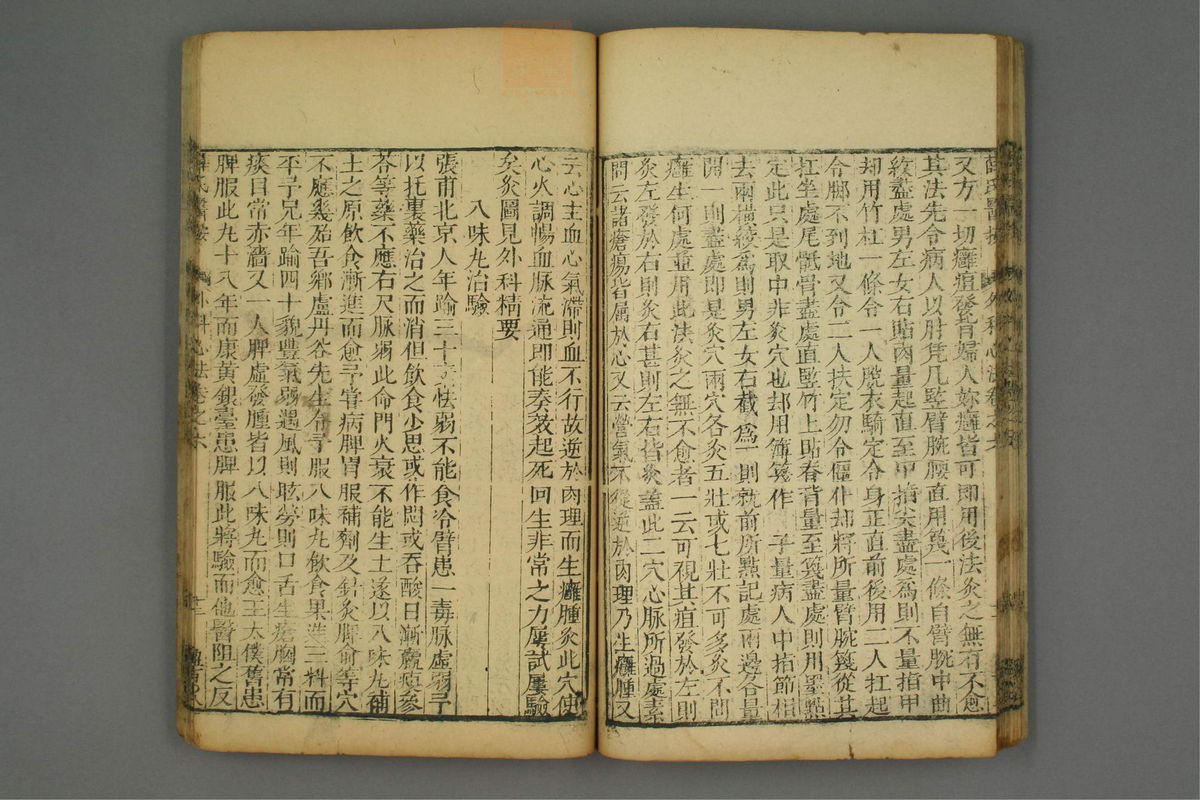 薛氏醫按 外科心法卷之六
又方一切癰疽發背婦人妳癰皆可即用後法灸之無有不愈
其法先令病人以肘凭几竪臂腕腰直用篾一條自臂腕中曲
紋盡處男左女右貼肉量起直至中指尖盡處爲則不量指甲
却用竹杠一條令一人脫衣騎定令身正直前後用二人扛起
令脚不到地又令二人扶定勿令傴仆却將所量臂腕篾從其
扛坐處尾骶骨盡處直竪竹上貼脊背量至篾盡處則用墨點
定此只是取中非灸穴也却用薄篾作 字量病人中指節相
去兩橫紋爲則男左女右截爲一則就前所點記處兩邊各量
開一則盡處即是灸穴兩穴各灸五壯或七壯不可多灸不問
癰生何處並用此法灸之無不愈者一云可視其疽發於左則
灸左發於右則灸右甚則左右皆灸蓋此二穴心脉所過處素
問云諸瘡瘍皆屬於心又云營氣不從逆於肉理乃生癰腫又
云心主血心氣滯則血不行故逆於肉理而生癰腫灸此穴使
心火調暢血脉流通即能奏效起死回生非常之力屢試屢驗
矣灸圖見外科精要
八味丸治驗
張甫北京人年踰三十 怯弱不能食冷臂患一毒脉虛弱予
以托裏藥治之而消但飲食少思或作悶或吞酸日漸羸瘦參
苓等藥不應右尺脉弱此命門火衰不能生土遂以八味丸補
土之原飲食漸進而愈予嘗病脾胃服補劑及針灸脾俞等穴
不應幾殆吾鄉盧丹谷先生令予服八味丸飲食果進三料而
平予兄年踰四十貌豐氣弱遇風則眩勞則口舌生瘡胸常有
痰目常赤濇又一人脾虛發腫皆以八味丸而愈王太僕舊患
脾服此丸十八年而康黃銀臺患脾服此將驗而他醫阻之反
薛氏醫按 外科心法卷之六